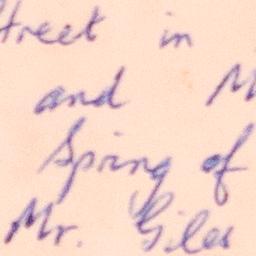 street in
and M
Spring of
Mr. Giles